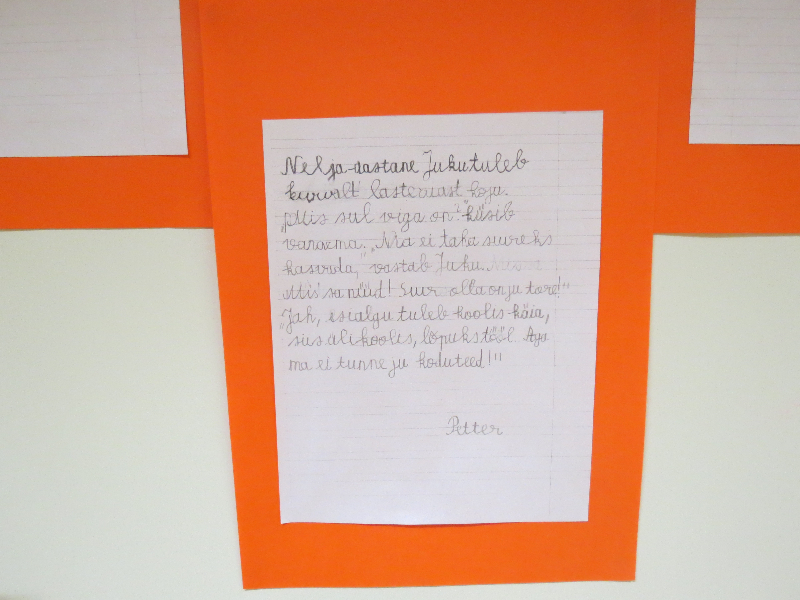 Nelja-aastane Juku tuleb
kurvalt lasteaiast koju.
„Mis sul viga on?" küsib
vanaema. „Ma ei taha suureks
kasvada," vastab Juku.
Mis sa nüüd! Suur olla on ju tore!"
„Jah, esialgu tuleb koolis käia,
siis ülikoolis, lõpuks tööl. Aga
ma ei tunne ju koduteed!"
Petter